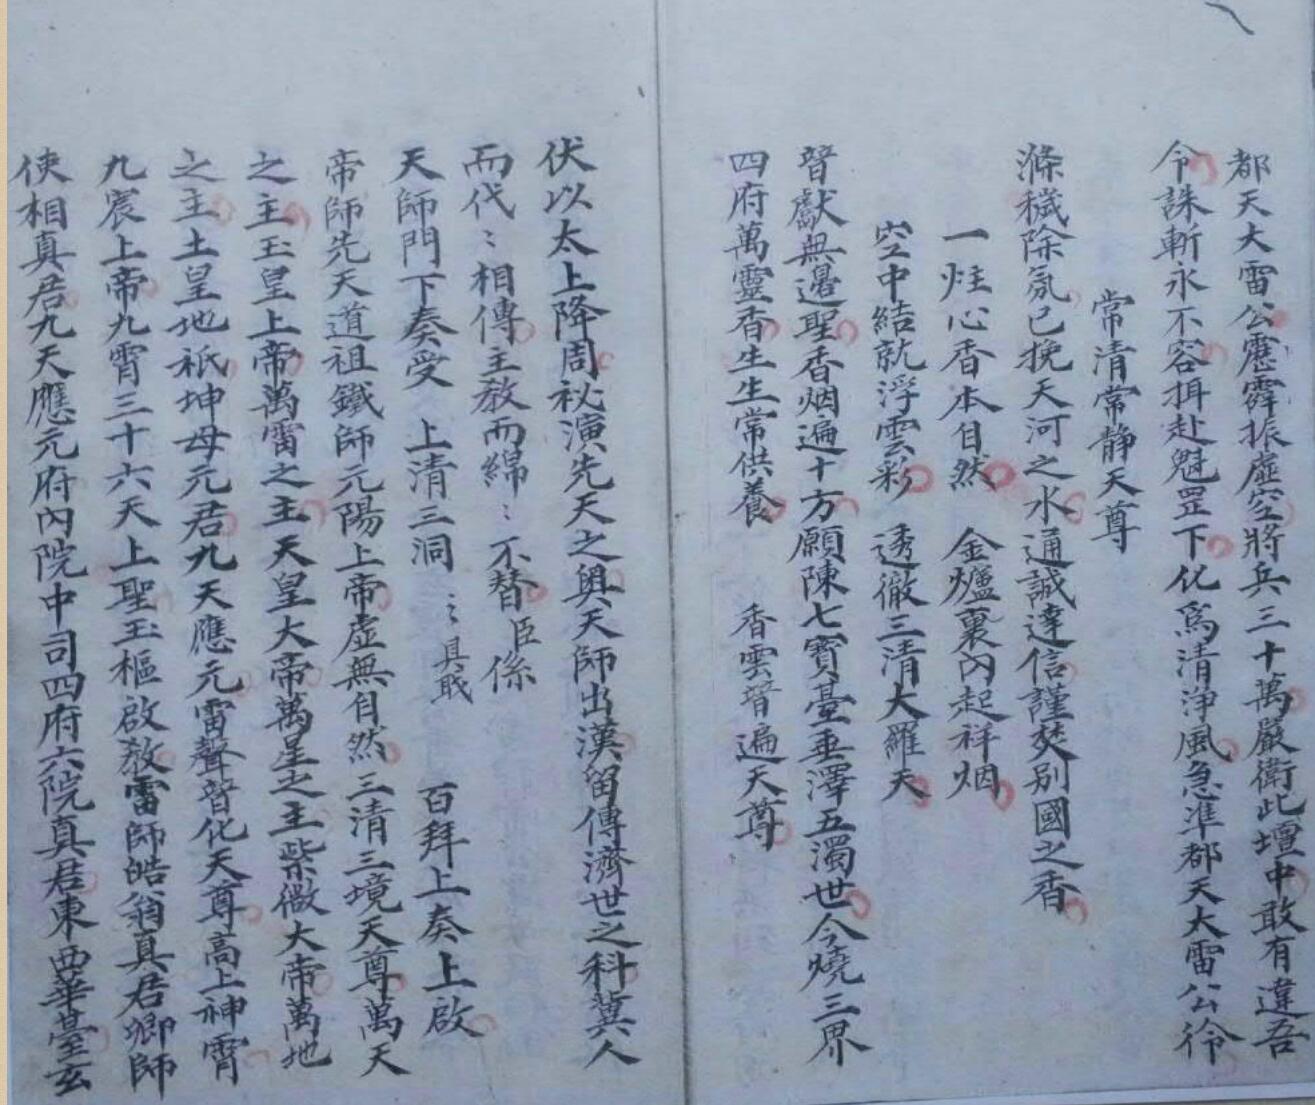 都天大雷公霹靂振虛空將兵三十萬嚴衛此壇中敢有違吾
令誅斬永不容揖赴魁罡下化為清淨風急準都天大雷公令
常清常静天尊
滌穢除氛已挽天河之水通誠達信謹焚別國之香
一炷心香本自然 金爐裏內起祥烟
空中結就浮雲彩 透徹三清大羅天
晉獻無邊聖香烟遍十方願陳七寶臺垂澤五濁世今燒三界
四府萬靈香生生常供養 香雲晉遍天尊
伏以太上降周祕演先天之奥天師出漢留傳濟世之科兾人
而代〻相傳主教而綿〻不替臣係
天師門下奏受 上清三洞 〻具職 百拜上奏上啟
帝師先天道祖鐵師元陽上帝虛無自然三清三境天尊萬天
之主玉皇上帝萬雷之主天皇大帝萬星之主紫微大帝萬地
之主土皇地祇坤母元君九天應元雷聲晉化天尊高上神霄
九宸上帝九霄三十六天上聖玉樞啟教雷師皓翁真君卿師
使相真君九天應元府內院中司四府六院真君東西華臺玄